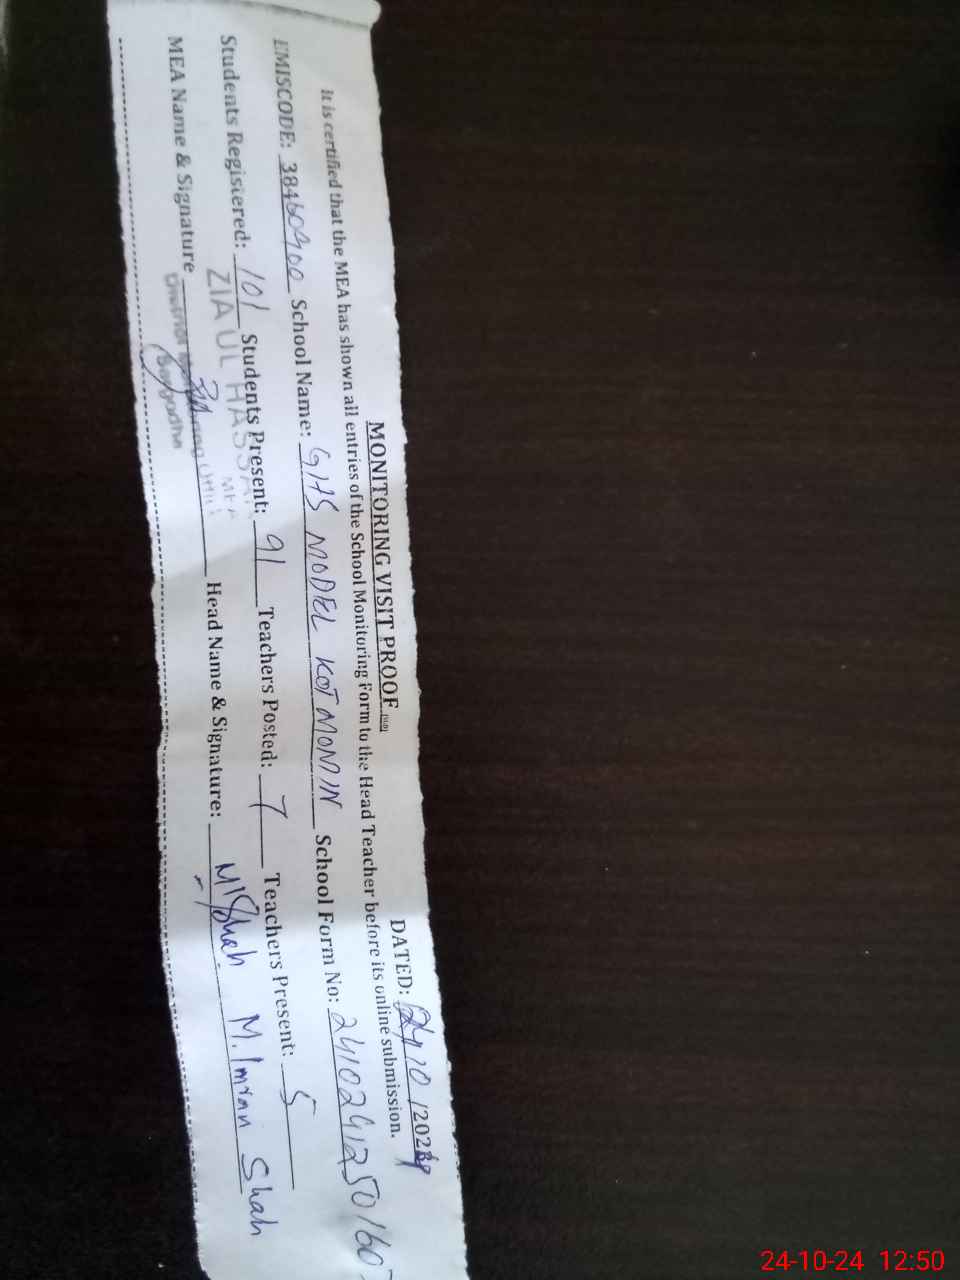 MONITORING VISIT PROOF
DATED: 24/10/2024
It is certified that the MEA has shown all entries of the School Monitoring Form to the Head Teacher before its online submission.
EMISCODE: 38460900 School Name: GHS MODEL KOT MOMIN School Form No: 2410241250160
Students Registered: 101 Students Present: 91 Teachers Posted: 7 Teachers Present: 5
ZIA UL HASSAN
MEA
MEA Name & Signature Head Name & Signature: MIShah M. Imran Shah
District
Sargodha
24-10-24 12:50